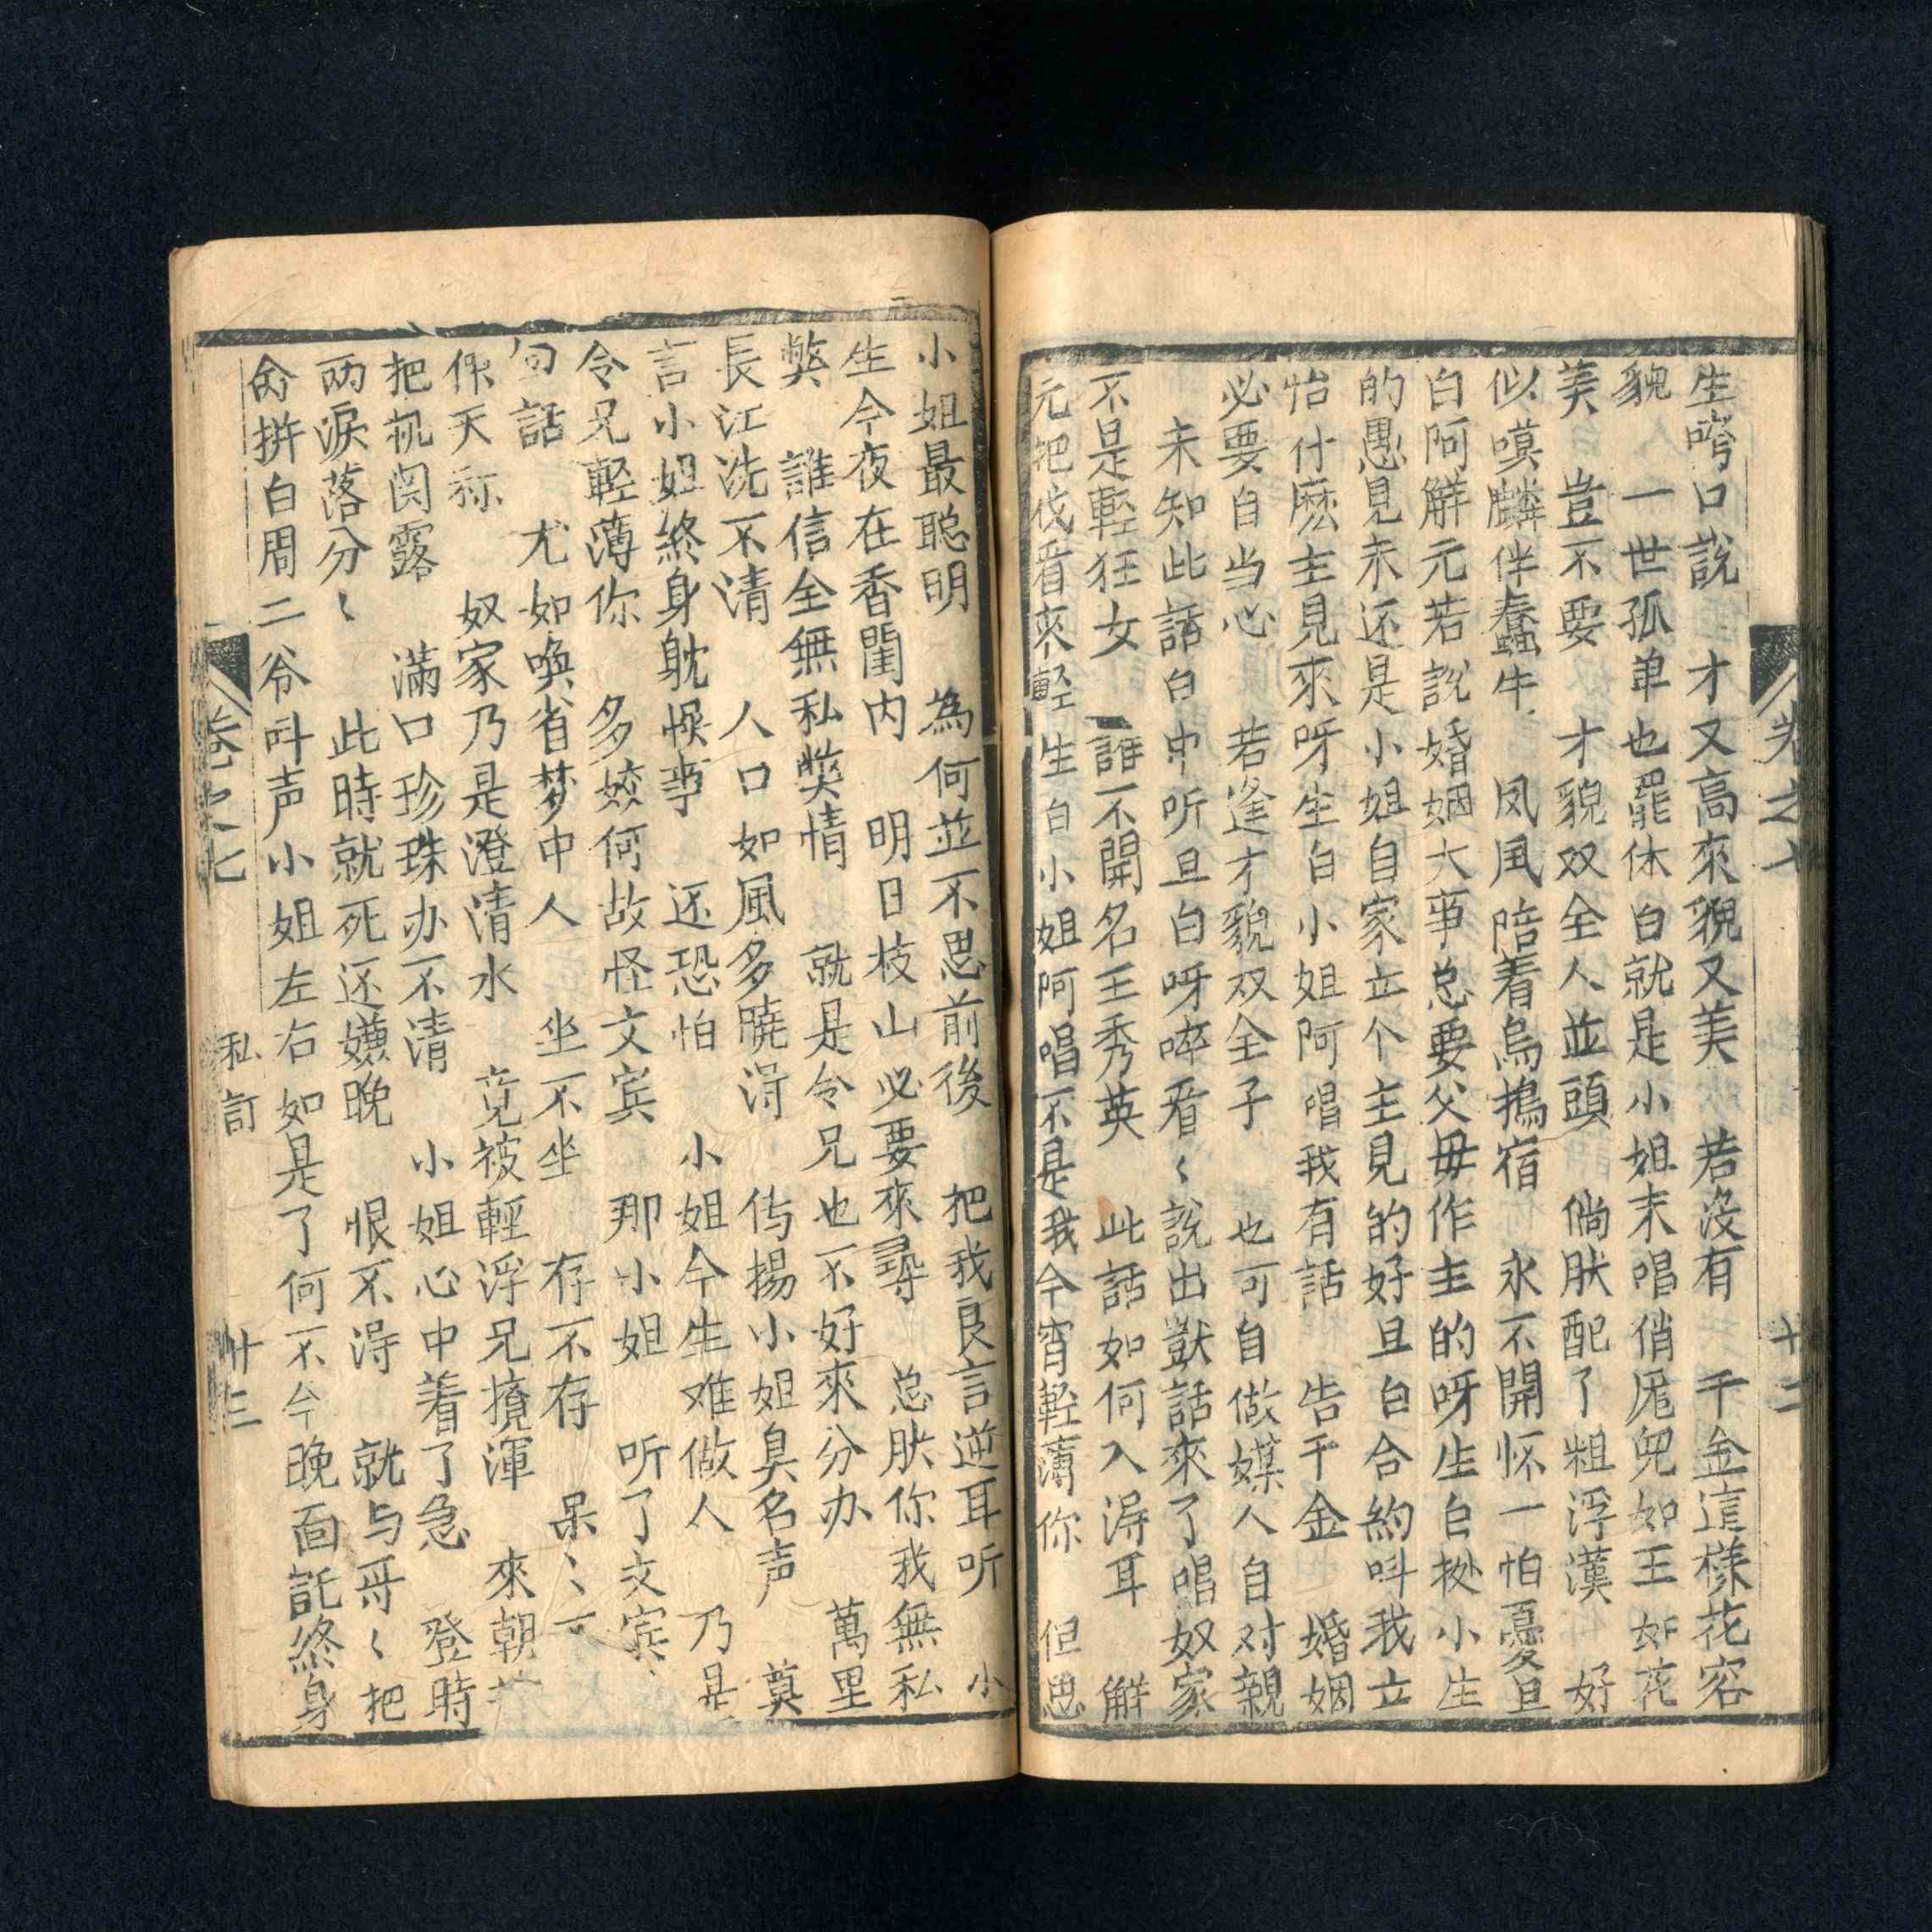 卷之七 十二
生嗙口說 才又高來貌又美 若沒有 千金這樣花容
貌 一世孤单也罷休白就是小姐末唱俏厖兒如玉如花
美 豈不要 才貌双全人並頭 倘肰配了粗浮漢 好
似嘆麟伴蠢牛 凤凨陪着烏搗宿 永不開怀一怕憂旦
白阿解元若說婚姻大事总要父毋作主的呀生白拟小生
的愚見末还是小姐自家立个主見的好旦白合約呌我立
怡什麽主見來呀生白小姐阿唱我有話 告千金 婚姻
必要自当心 若逢才貌双全子 也可自做媒人自对親
未知此話白中听旦白呀啐看〻說出獃話來了唱奴家
不是輕狂女 誰不開名王秀英 此話如何入淂耳 觧
元把伐看來輕 生白小姐阿唱不是我今宵輕薄你 但思
小姐最聪明 為何並不思前後 把我良言逆耳听 小
生今夜在香閨内 明日枝山必要來尋 总肰你我無私
獘 誰信全無私獘情 就是令兄也不好來分办 萬里
長江洗不清 人口如風多曉淂 传揚小姐臭名声 莫
言小姐終身躭悮事 还恐怕 小姐今生难做人 乃是
令兄輕薄你 多姣何故怪文宾 那小姐 听了文宾
句話 尤如喚省梦中人 坐不坐 存不存 呆〻
你天称 奴家乃是澄清水 竟被輕浮兄攪渾 來朝
把机関露 满口珍珠办不清 小姐心中着了急 登時
两淚落分〻 此時就死还嫌晚 恨不淂 就与哥〻把
命拚白周二爷呌声小姐左右如是了何不今晚面託終身
卷之七 私訂 廿三